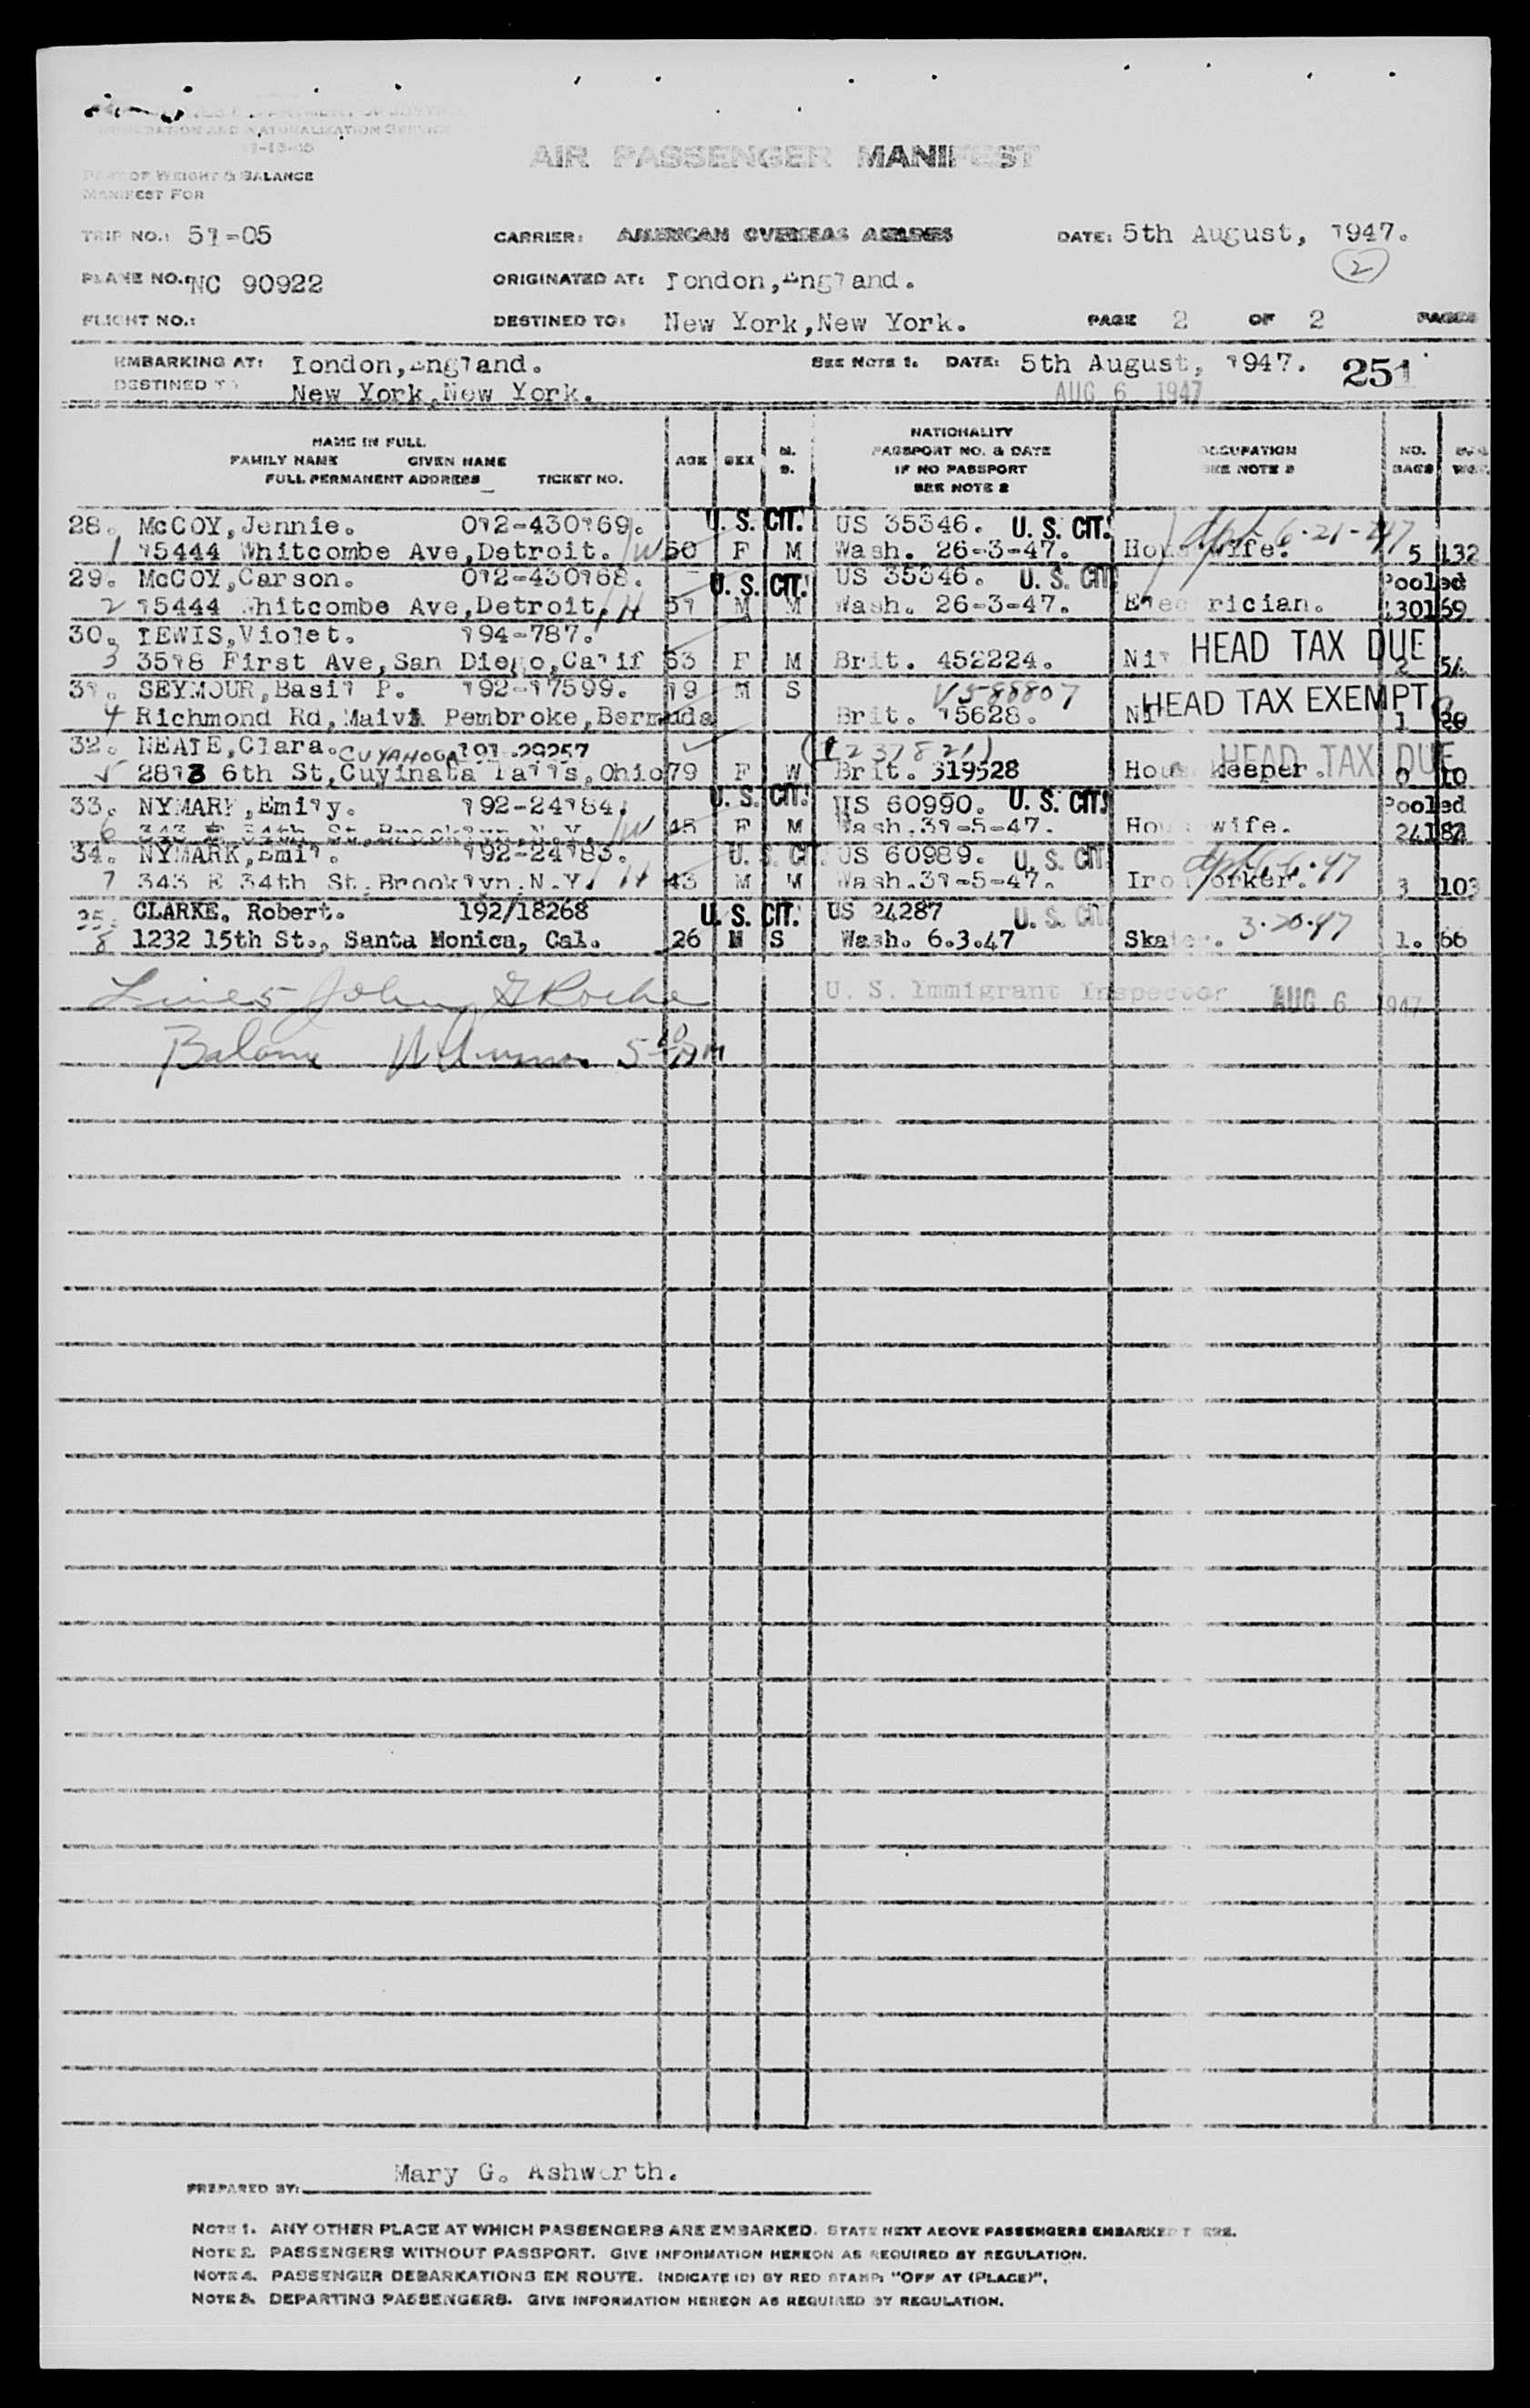 IMMIGRATION AND NATURALIZATION SERVICE
AIR PASSENGER MANIFEST
PART OF WEIGHT & BALANCE
MANIFEST FOR
TRIP NO.: 51-05 CARRIER: AMERICAN OVERSEAS AIRLINES DATE: 5th August, 1947.
2
PLANE NO.: NC 90922 ORIGINATED AT: London,England.
FLIGHT NO.: DESTINED TO: New York,New York. PAGE 2 OF 2 PAGES
EMBARKING AT: London,England. SEE NOTE 1. DATE: 5th August, 1947. 251
DESTINED TO New York,New York. AUG 6 1947
NAME IN FULL
FAMILY NAME GIVEN NAME
FULL PERMANENT ADDRESS TICKET NO.
AGE SEX M. S.
NATIONALITY
PASSPORT NO. & DATE
IF NO PASSPORT
SEE NOTE 2
OCCUPATION
SEE NOTE 3
NO. BAGS
28. McCOY,Jennie. 012-430169. U. S. CIT. US 35346. U. S. CIT. 6-21-47
1 15444 Whitcombe Ave,Detroit. W 50 F M Wash. 26-3-47. Housewife. 5 132
29. McCOY,Carson. 012-430168. U. S. CIT. US 35346. U. S. CIT Pooled
2 15444 Whitcombe Ave,Detroit. H 51 M M Wash. 26-3-47. Electrician.
30. LEWIS,Violet. 194-787. HEAD TAX DUE
3 3518 First Ave,San Diego,Calif 53 F M Brit. 452224. Nil 2 54
31. SEYMOUR,Basil P. 192-17599. 19 M S V588807 HEAD TAX EXEMPT
4 Richmond Rd, Pembroke,Bermuda Brit. 15628. Nil 1
32. NEATE,Clara. CUYAHOGA 191-29257 HEAD TAX DUE
5 2813 6th St,Cuyinata Falls,Ohio 79 F W Brit. 319528 Housekeeper. 0 10
33. NYMARK,Emily. 192-24184. U. S. CIT. US 60990. U. S. CIT. Pooled
6 343 E 34th St,Brooklyn,N.Y. W 45 F M Wash.31-5-47. Housewife.
34. NYMARK,Emil. 192-24183. U. S. CIT. US 60989. U. S. CIT 6-6-47
7 343 E 34th St,Brooklyn.N.Y. H 43 M M Wash.31-5-47. Iron Worker. 3 103
35. CLARKE, Robert. 192/18268 U. S. CIT. US 24287 U. S. CIT
8 1232 15th St., Santa Monica, Cal. 26 M S Wash. 6.3.47 Skater. 3-20-47 1. 66
Line 5 John G Roche U. S. Immigrant Inspector AUG 6 1947
Balance
PREPARED BY: Mary G. Ashworth.
NOTE 1. ANY OTHER PLACE AT WHICH PASSENGERS ARE EMBARKED. STATE NEXT ABOVE PASSENGERS EMBARKED THERE.
NOTE 2. PASSENGERS WITHOUT PASSPORT. GIVE INFORMATION HEREON AS REQUIRED BY REGULATION.
NOTE 4. PASSENGER DEBARKATIONS EN ROUTE. INDICATE (D) BY RED STAMP: "OFF AT (PLACE)".
NOTE 3. DEPARTING PASSENGERS. GIVE INFORMATION HEREON AS REQUIRED BY REGULATION.